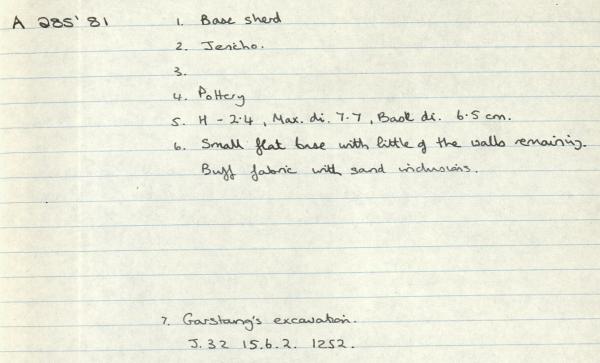 A 285'81 1. Base sherd
2. Jericho.
3.
4. Pottery
5. H - 2.4, Max. di. 7.7, Base di. 6.5 cm.
6. Small flat base with little of the walls remaining.
Buff fabric with sand inclusions.
7. Garstang's excavation.
J.32 15.6.2. 1252.